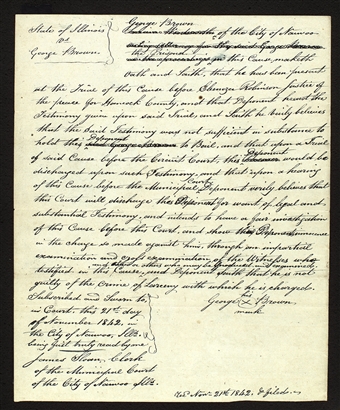 State of Illinois
vs
George Brown
George Brown
of the City of Nauvoo
the Prisoner
in this Cause maketh
Oath and Saith, that he has been present
at the Trial of this Cause before Ebenezer Robinson Justice of
the peace for Hancock County, and that Deponent heard the
Testimony given upon said Trial, and Saith he verily believes
that the Said Testimony was not sufficient in substance to
hold this Deponent to Bail, and that upon a Trial
of said Cause before the Circuit Court, this Deponent would be
discharged upon such Testimony, and that upon a hearing
of this Cause before the Municipal Court Deponent verily believes that
this Court will discharge this Deponent for want of legal and
substantial Testimony, and intends to have a fair investigation
of this Cause before this Court, and shew this Deponents innocence
in the charge so made against him, through an impartial
examination and cross examination of the Witnesses who
testified in this Cause, and Deponent Saith that he is not
guilty of the Crime of Larceny with which he is charged.
Subscribed and Sworn to
in Court, this 21st day
of November 1842, in
the City of Nauvoo, Ills.
being first truly read by me
James Sloan, Clerk
of the Municipal Court
of the City of Nauvoo Ills.
his
George X Brown
mark
Novr. 21st 1842. & filed